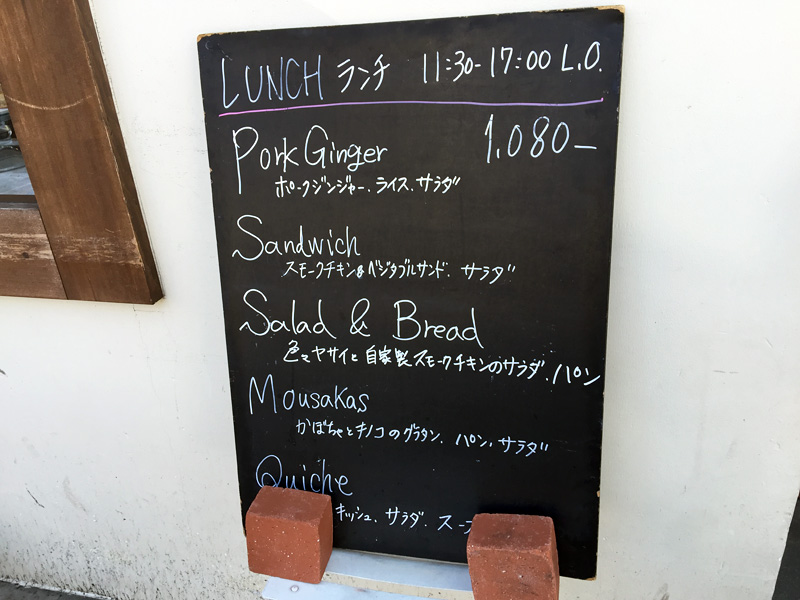 LUNCH ランチ 11:30-17:00 L.O.
Pork Ginger 1,080-
ポークジンジャー、ライス、サラダ
Sandwich
スモークチキン&ベジタブルサンド、サラダ
Salad & Bread
色々ヤサイと自家製スモークチキンのサラダ、パン
Mousakas
かぼちゃとキノコのグラタン、パン、サラダ
Quiche
キッシュ、サラダ、スープ